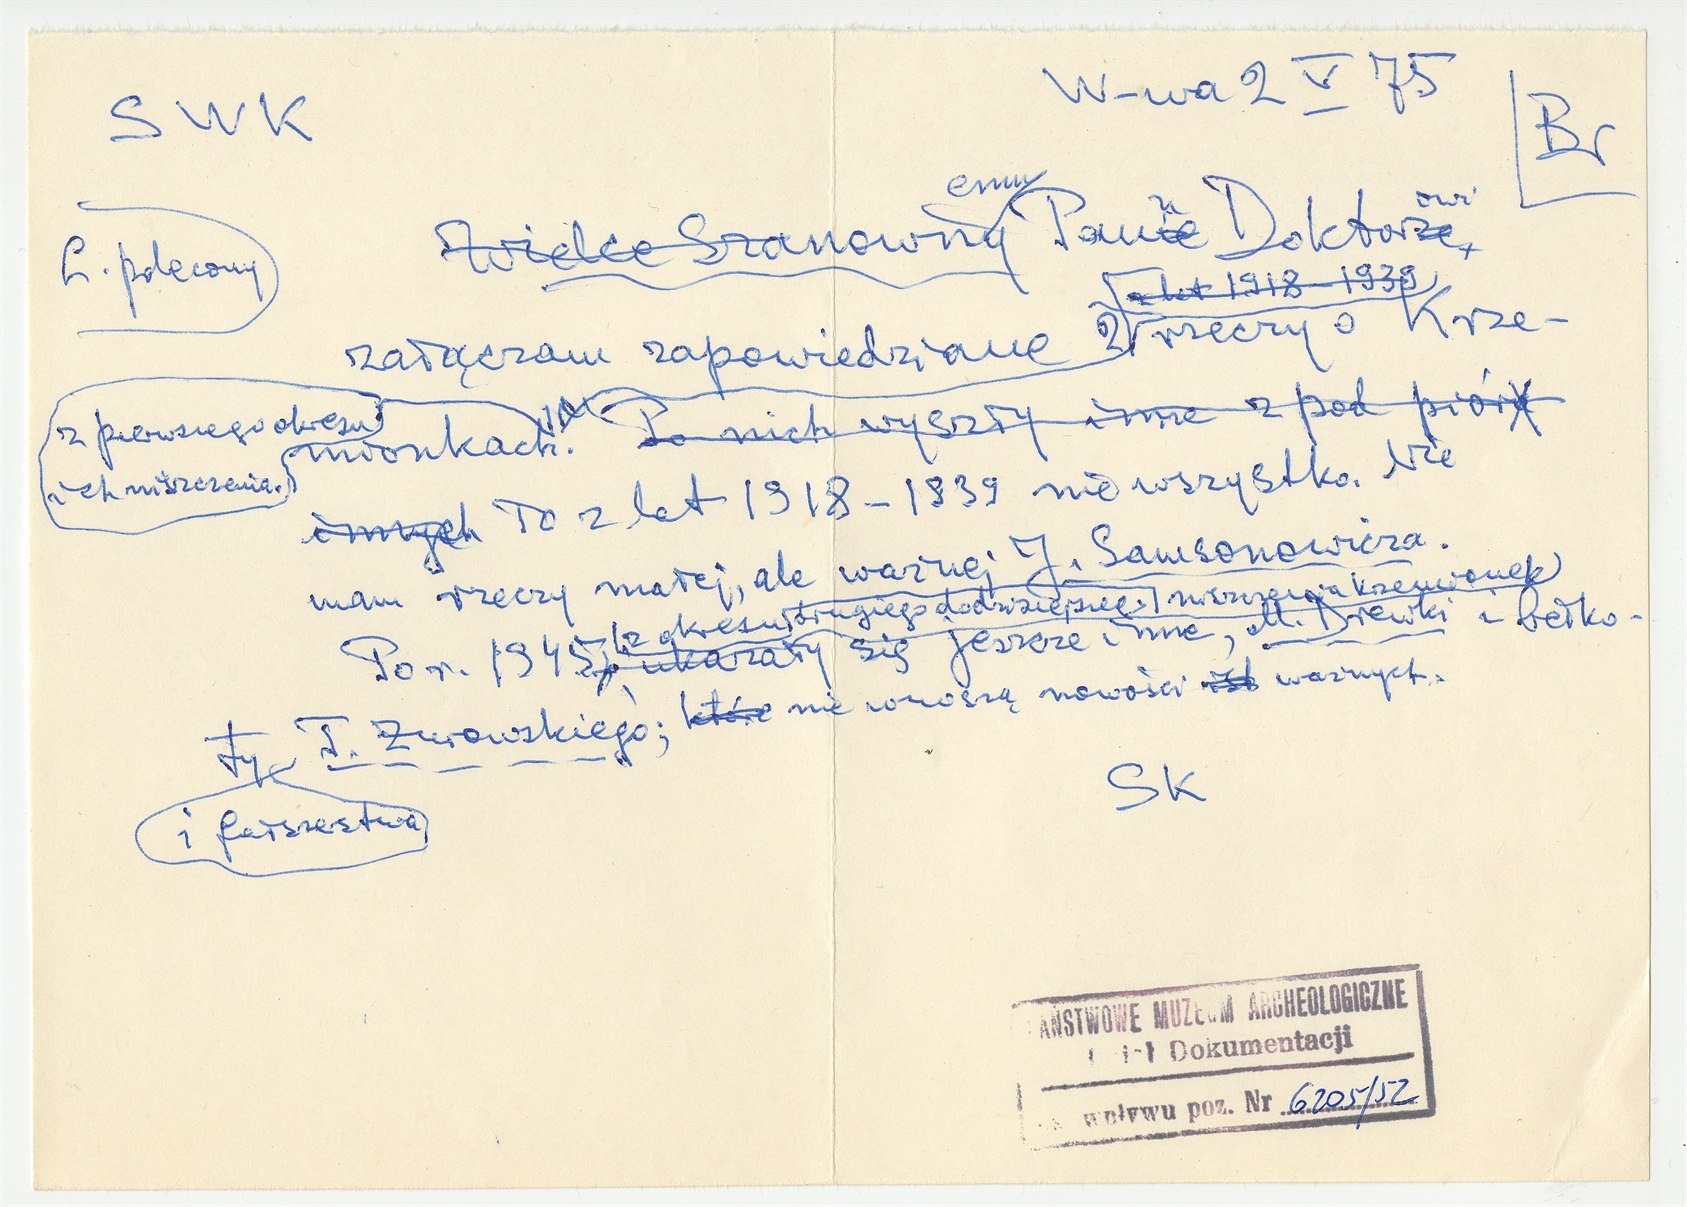 W-wa 2 V 75
SWK
Br
L. polecony
emu u owi
Wielce Szanowny Panie Doktorze,
z lat 1918–1939
załączam zapowiedziane 2 rzeczy o Krze-
z pierwszego okresu
ich niszczenia.
mionkach. Po nich wyszły inne z pod pióra
innych To z lat 1918–1939 nie wszystko. Nie
mam rzeczy małej, ale ważnej J. Samsonowicza.
z okresu drugiego dodzisiejszego niszczenia krzemionek
Po r. 1945 ukazały się jeszcze inne, M. Drewki i bełko-
ty T. Żurowskiego; które nie wnoszą nowości ważnych.
i fałszerstwa
SK
PAŃSTWOWE MUZEUM ARCHEOLOGICZNE
Dokumentacji
wpływu poz. Nr 6205/52